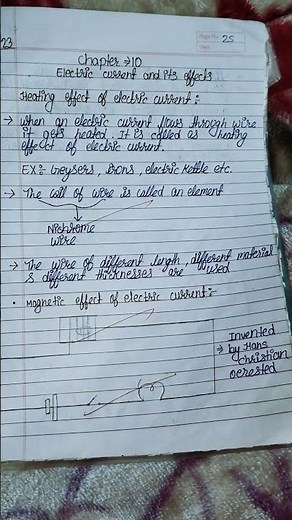 23
Page No. 25
Date
Chapter → 10
Electric current and its effects
Heating effect of electric current :-
→ when an electric current flows through wire
it gets heated. It is called as heating
effect of electric current.
EX:- Geysers, Irons, electric kettle etc.
→ The coil of wire is called an element
Nichrome
wire
→ The wire of different length, different material
& different thicknesses are used
• Magnetic effect of electric current:-
Invented
→ by Hans
Christian
oersted